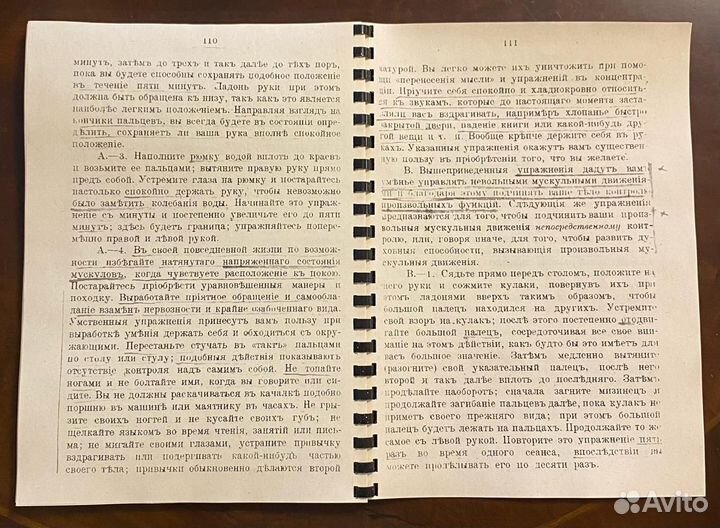 110
минутъ, затѣмъ до трехъ и такъ далѣе до тѣхъ поръ,
пока вы будете способны сохранять подобное положеніе
въ теченіе пяти минутъ. Ладонь руки при этомъ
должна быть обращена къ низу, такъ какъ это является
наиболѣе легкимъ положеніемъ. Направляя взглядъ на
кончики пальцевъ, вы всегда будете въ состояніи опре-
дѣлить, сохраняетъ ли ваша рука вполнѣ спокойное
положеніе.
А.—3. Наполните рюмку водой вплоть до краевъ
и возьмите ее пальцами; вытяните правую руку прямо
предъ собой. Устремите глаза на рюмку и постарайтесь
настолько спокойно держать руку, чтобы невозможно
было замѣтить колебанія воды. Начинайте это упраж-
неніе съ минуты и постепенно увеличьте его до пяти
минутъ; здѣсь будетъ граница; упражняйтесь попере-
мѣнно правой и лѣвой рукой.
А.—4. Въ своей повседневной жизни по возмож-
ности избѣгайте натянутаго напряженнаго состоянія
мускуловъ, когда чувствуете расположеніе къ покою.
Постарайтесь пріобрѣсти уравновѣшенныя манеры и
походку. Выработайте пріятное обращеніе и самообла-
даніе взамѣнъ нервности и крайне озабоченнаго вида.
Умственныя упражненія принесутъ вамъ пользу при
выработкѣ умѣнія держать себя и обходиться съ окру-
жающими. Перестаньте стучать въ «тактъ» пальцами
по столу или стулу; подобныя дѣйствія показываютъ
отсутствіе контроля надъ самимъ собой. Не топайте
ногами и не болтайте ими, когда вы говорите или си-
дите. Вы не должны раскачиваться въ качалкѣ подобно
поршню въ машинѣ или маятнику въ часахъ. Не гры-
зите своихъ ногтей и не кусайте своихъ губъ; не
щелкайте языкомъ во время чтенія, занятій или пись-
ма; не мигайте своими глазами, устраните привычку
вздрагивать или подергивать какой-нибудь частью
своего тѣла; привычки обыкновенно дѣлаются второй
111
натурой. Вы легко можете ихъ уничтожить при помо-
щи «перенесенія мысли» и упражненій въ концентра-
ціи. Пріучите себя спокойно и хладнокровно относить-
ся къ звукамъ, которые до настоящаго момента заста-
вляли васъ вздрагивать, напримѣръ хлопанье быстро
закрытой двери, паденіе книги или какой-нибудь дру-
гой вещи и т. п. Вообще крѣпче держите себя въ ру-
кахъ. Указанныя упражненія окажутъ вамъ существен-
ную пользу въ пріобрѣтеніи того, что вы желаете.
В. Вышеприведенныя упражненія дадутъ вамъ
умѣнье управлять невольными мускульными движенія-
ми и благодаря этому подчинить ваше тѣло контролю
произвольныхъ функцій. Слѣдующія же упражненія
предназначаются для того, чтобы подчинить ваши произ-
вольныя мускульныя движенія непосредственному конт-
ролю, или, говоря иначе, для того, чтобы развить ду-
ховныя способности, вызывающія произвольныя му-
скульныя движенія.
В.—1. Сядьте прямо передъ столомъ, положите на
него руки и сожмите кулаки, повернувъ ихъ при
этомъ ладонями вверхъ такимъ образомъ, чтобы
большой палецъ находился на другихъ. Устремите
свой взоръ на кулакъ; послѣ этого постепенно отодви-
гайте большой палецъ, сосредоточивая все свое вни-
маніе на этомъ дѣйствіи, какъ будто бы это имѣетъ для
васъ большое значеніе. Затѣмъ медленно вытяните
(разогните) свой указательный палецъ, послѣ него
второй и такъ далѣе вплоть до послѣдняго. Затѣмъ
продѣлайте наоборотъ; сначала загните мизинецъ и
продолжайте загибаніе пальцевъ далѣе, пока кулакъ не
приметъ своего прежняго вида; при этомъ большой
палецъ будетъ лежать на пальцахъ. Продолжайте то же
самое съ лѣвой рукой. Повторите это упражненіе пять
разъ во время одного сеанса, впослѣдствіи вы
можете продѣлывать его по десяти разъ.
Avito